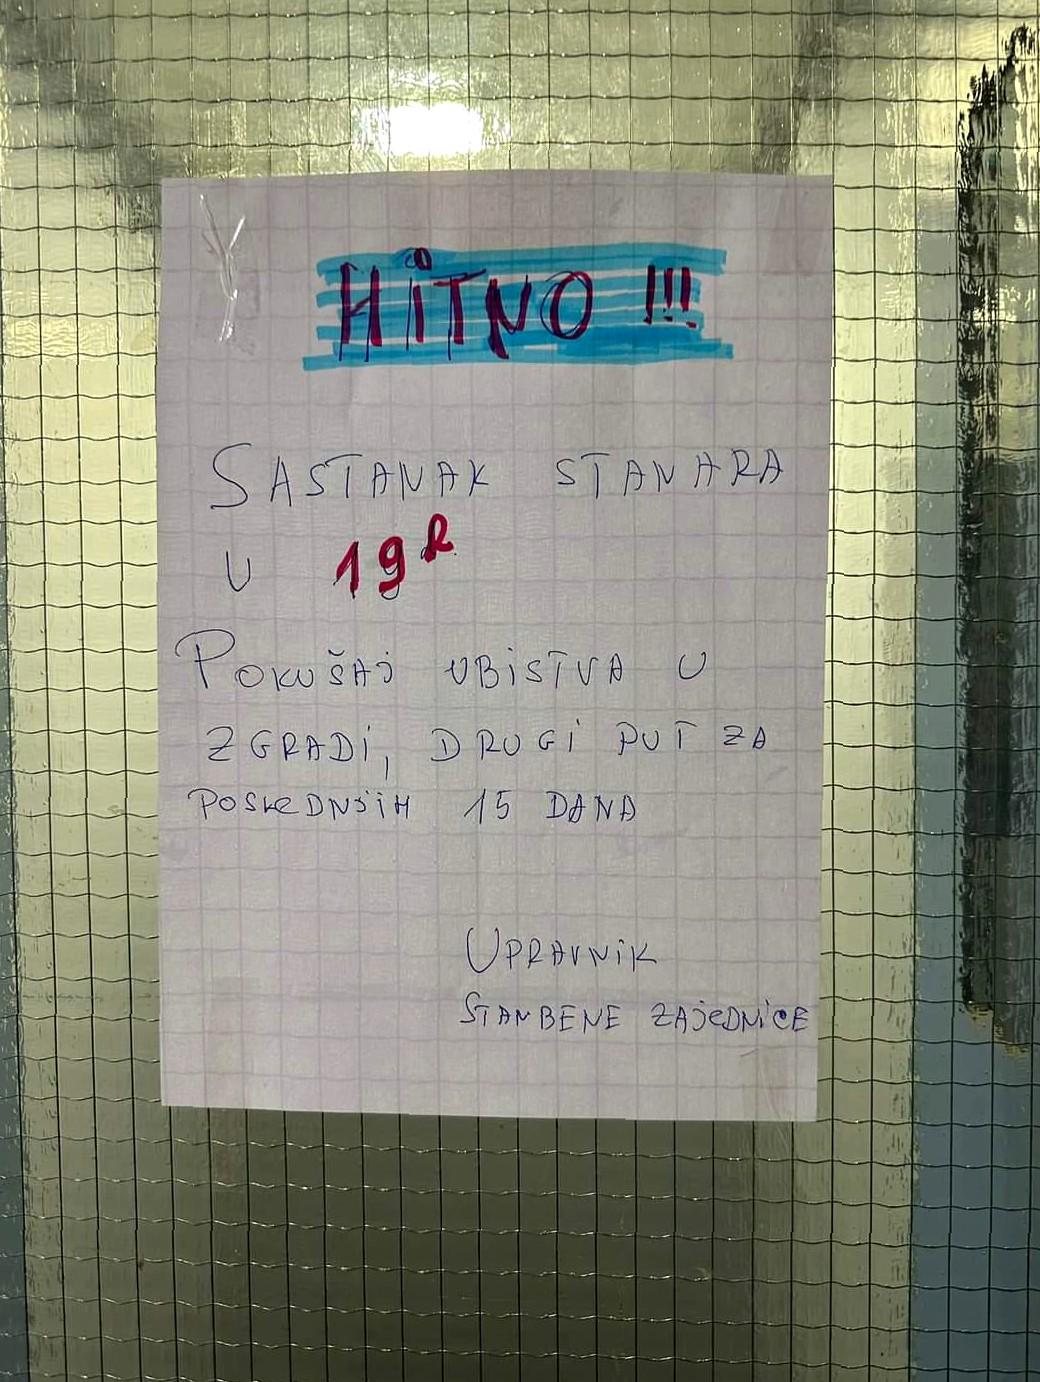 HITNO !!!
SASTANAK STANARA
U 19h
POKUŠAJ UBISTVA U
ZGRADI, DRUGI PUT ZA
POSLEDNJIH 15 DANA
UPRAVNIK
STAMBENE ZAJEDNICE